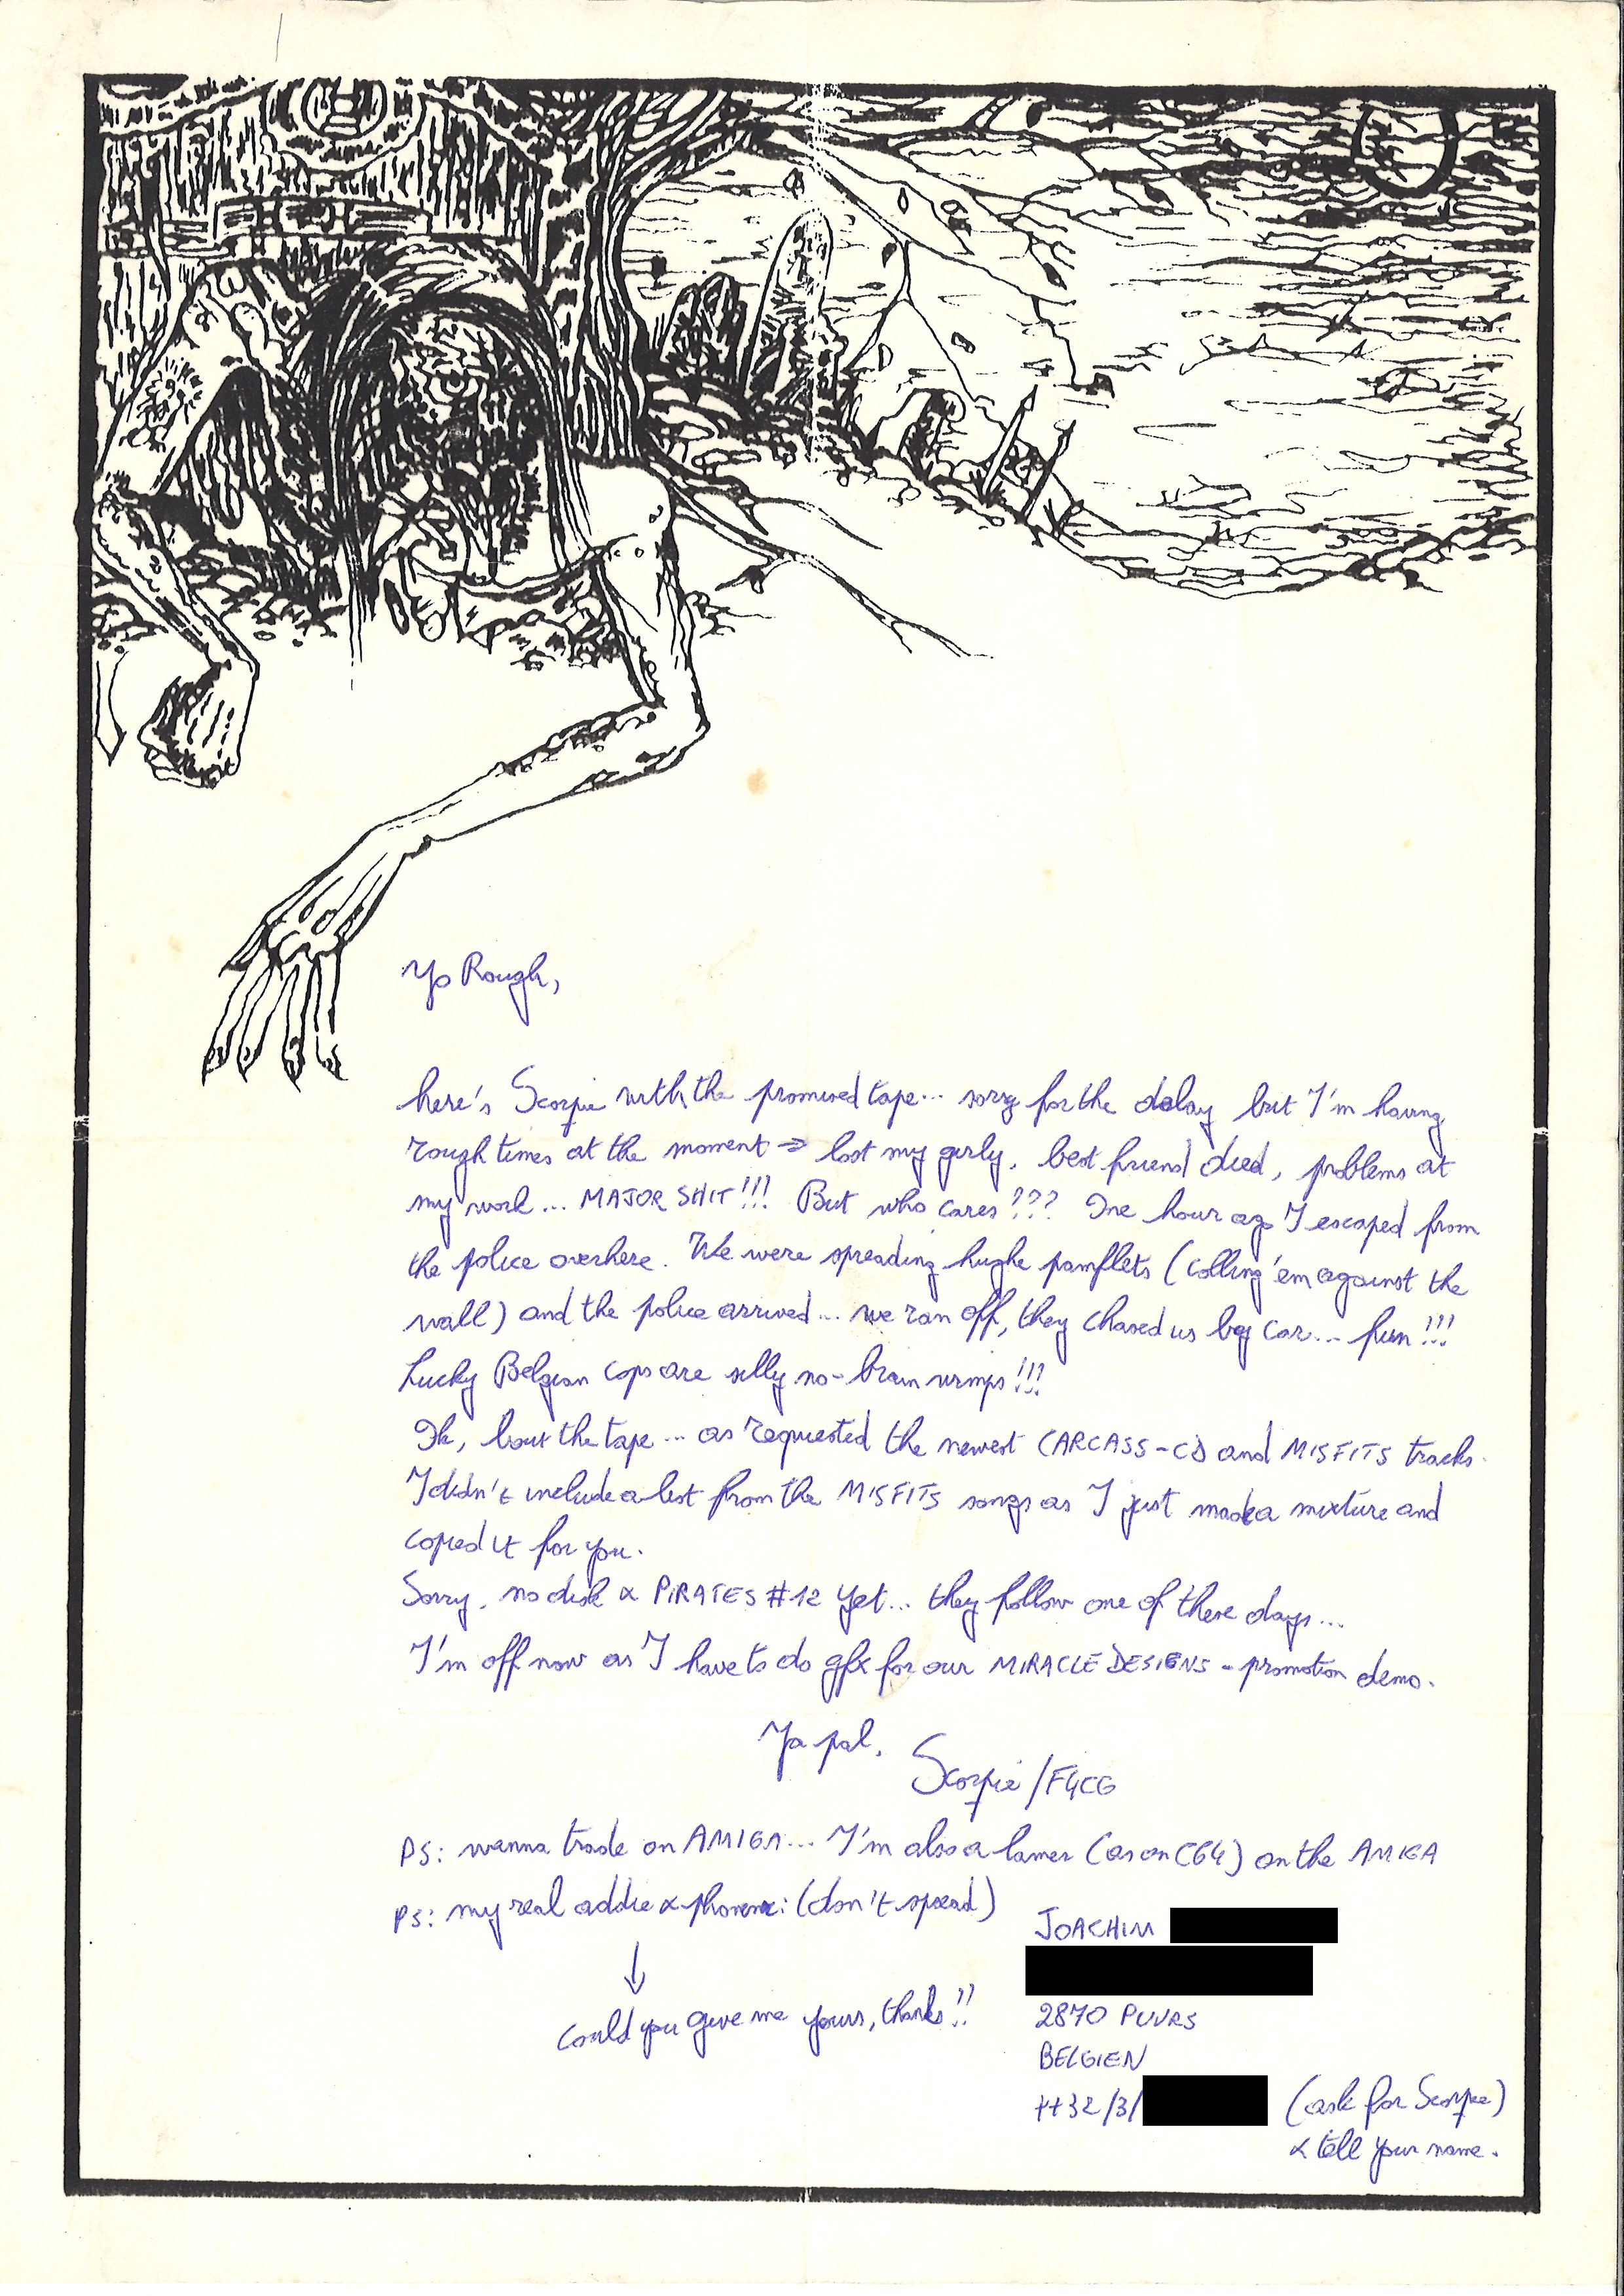 Yo Rough,
here's Scorpie with the promised tape... sorry for the delay but I'm having
rough times at the moment => lost my girly, best friend died, problems at
my work... MAJOR SHIT!!! But who cares??? One hour ago I escaped from
the police overhere. We were spreading hughe pamflets (colling 'em against the
wall) and the police arrived... we ran off, they chased us by car... fun!!!
Lucky Belgian cops are silly no-brain wimps!!!
Ok, bout the tape... as requested the newest CARCASS-CD and MISFITS tracks.
I didn't include a list from the MISFITS songs as I just made a mixture and
copied it for you.
Sorry, no disk & PIRATES #12 yet... they follow one of these days...
I'm off now as I have to do gfx for our MIRACLE DESIGNS - promotion demo.
Ya pal,
Scorpie/F4CG
PS: wanna trade on AMIGA... I'm also a lamer (as on C64) on the AMIGA
PS: my real addie & phonenr: (don't spread)
JOACHIM
↓
could you give me yours, thanks!!
2870 PUURS
BELGIEN
++32/3/ (ask for Scorpie)
& tell your name.